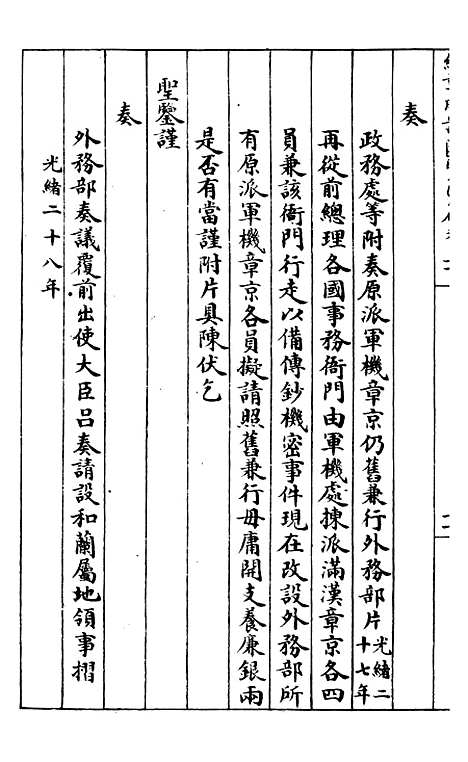 奏
政務處等附奏原派軍機章京仍舊兼行外務部片光緒二十七年
再從前總理各國事務衙門由軍機處揀派滿漢章京各四
員兼該衙門行走以備傳鈔機密事件現在改設外務部所
有原派軍機章京各員擬請照舊兼行毋庸開支養廉銀兩
是否有當謹附片具陳伏乞
聖鑒謹
奏
外務部奏議覆前出使大臣呂奏請設和蘭屬地領事摺
光緒二十八年